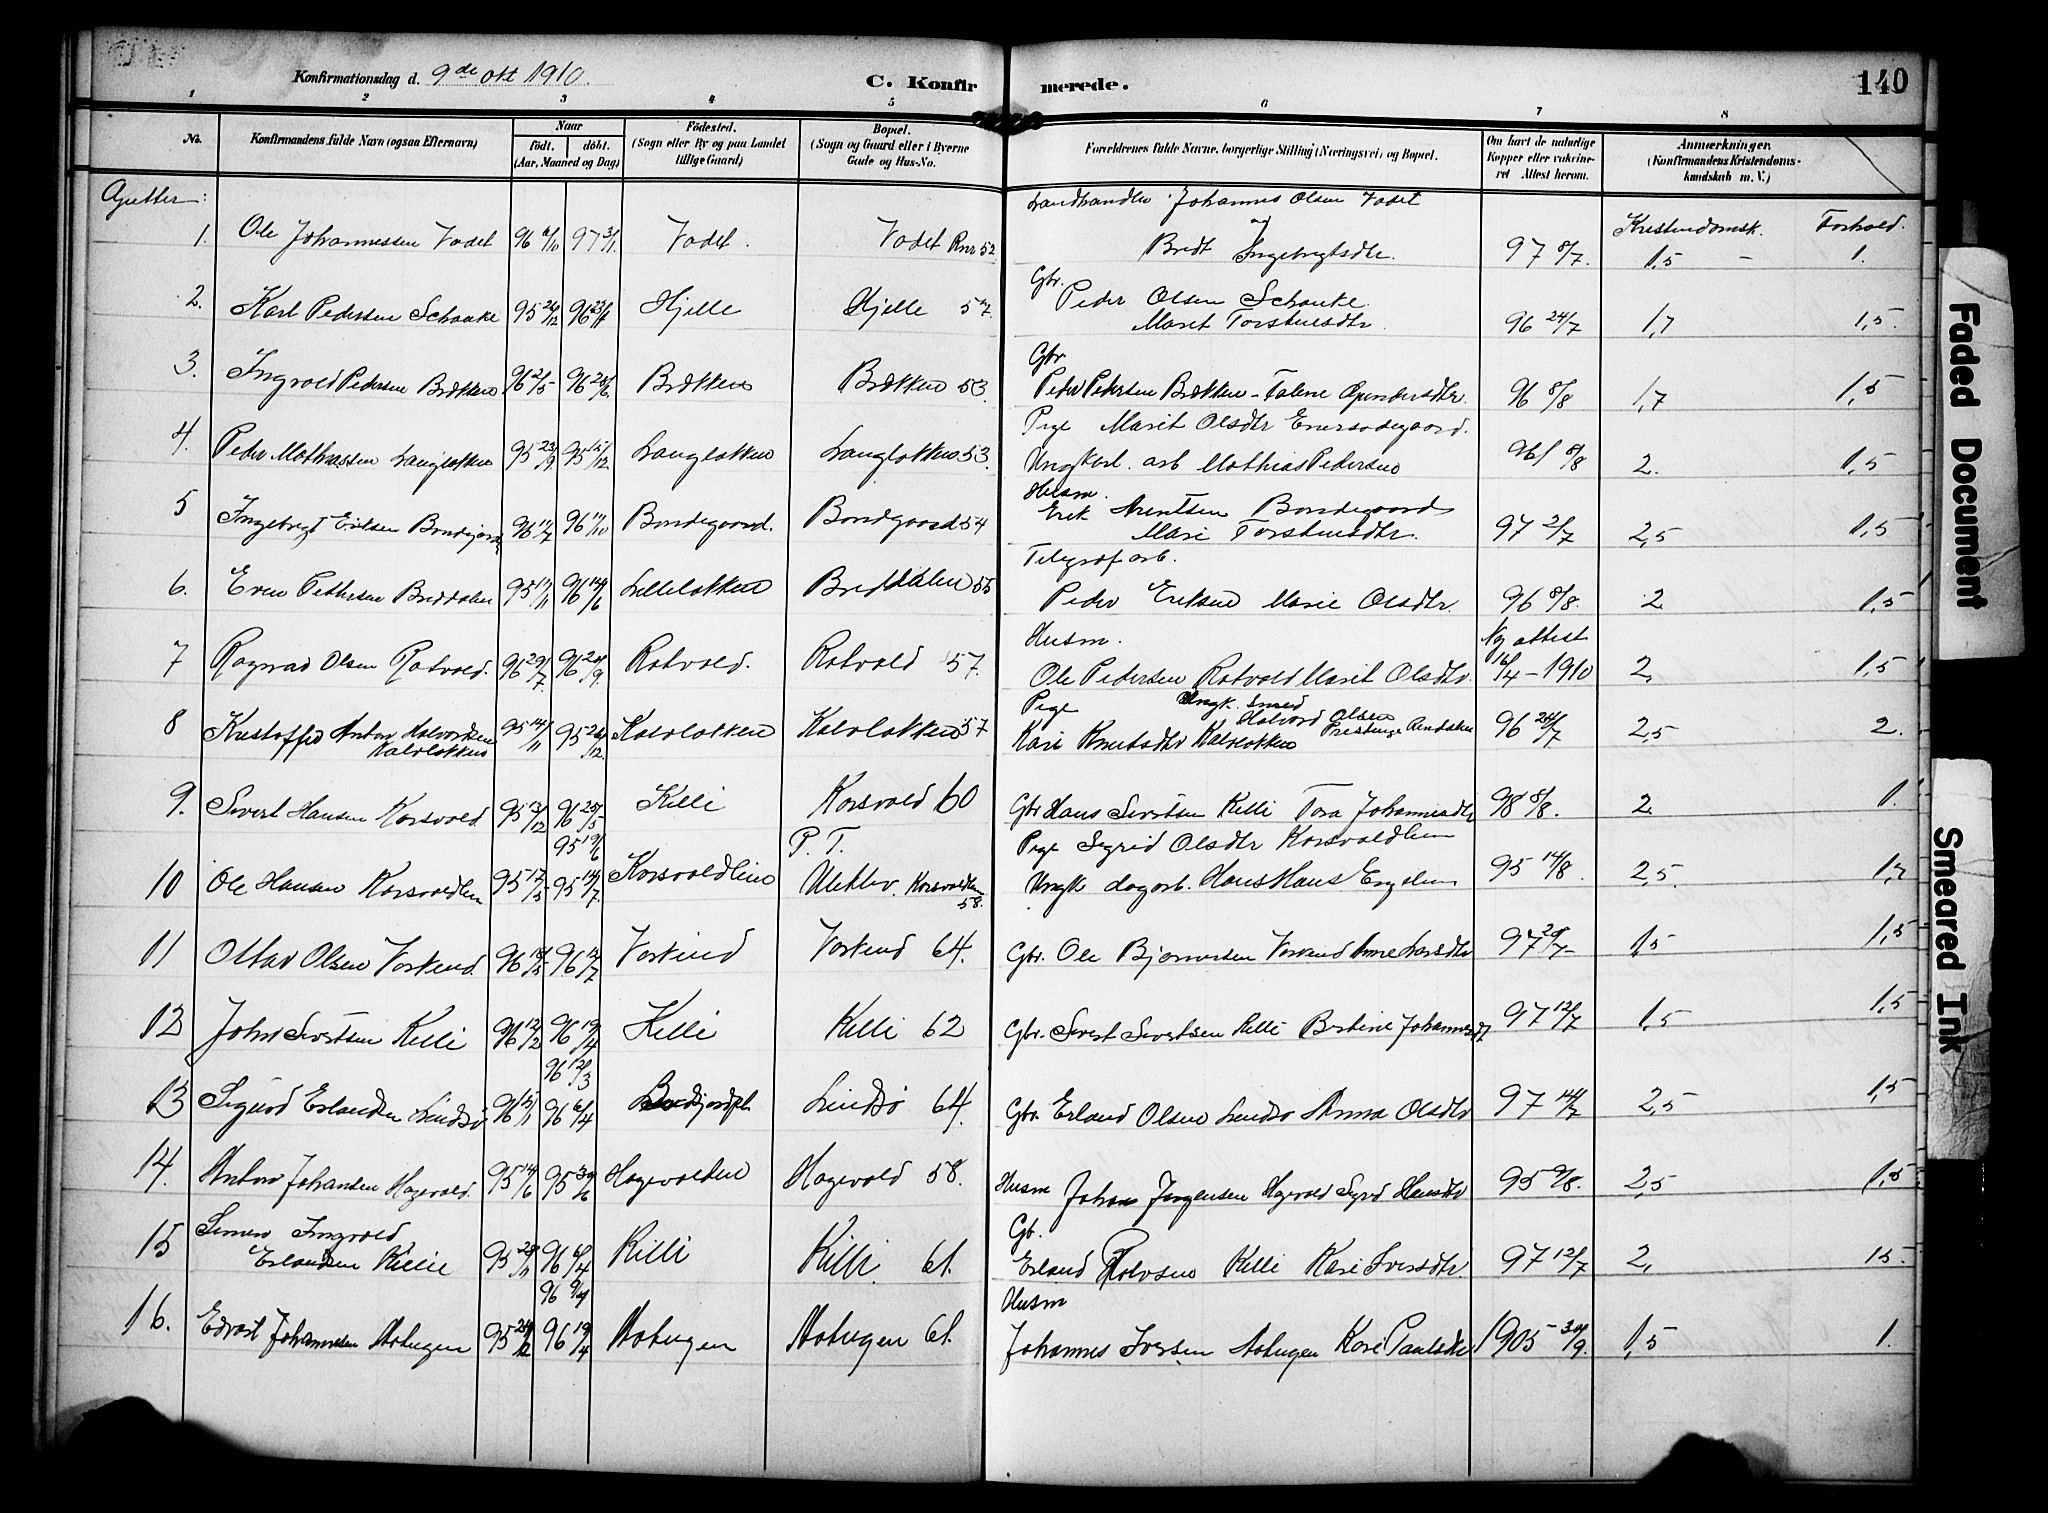 Konfirmationsdag d. 9de okt 1910.
C. Konfirmerede.
140
1 2 3 4 5 6 7 8
No.
Konfirmandens fulde Navn (ogsaa Efternavn)
Naar
født. døbt.
(Aar, Maaned og Dag)
Fødested.
(Sogn eller By og paa Landet
tillige Gaard)
Bopæl.
(Sogn og Gaard eller i Byerne
Gade og Hus-No.
Forældrenes fulde Navne, borgerlige Stilling (Næringsvei) og Bopæl.
Om havt de naturlige
Kopper eller vaccine-
ret Attest herom.
Anmærkninger.
(Konfirmandens Kristendoms-
kundskab m. V.)
Gutter:
Kristendomsk. Forhold.
Landhandler Johannes Olsen Vadet
1. Ole Johannessen Vadet 96 6/10 97 3/1 Vadet. Vadet Rnr 52 Brett Ingebregtsdtr. 97 8/7. 1,5 – 1.
Gbr.
Peder Olsen Schanke
2. Karl Pedersen Schanke 95 26/12 96 23/1 Hjelle Hjelle 57. Marit Torstensdtr. 96 24/7 1,7 1,5.
Gbr
3. Ingvald Pedersen Brækken 96 2/5 96 28/6 Brækken Brækken 53. Peder Pedersen Brækken – 96 8/8 1,7 1,5
Pige Marit Olsdtr
4. Peder Mathiassen Langløkken 95 23/9 95 15/12 Langløkken Langløkken 53. Ungkarl. arb Mathias Pedersen 96 8/8 2. 1,5
Husm.
Erik Arentsen Bondegaard
5 Ingebregt Eriksen 96 17/7 96 11/10 Bondegaard. Bondgaard 54 Mari Torstensdtr. 97 2/7 2,5 1,5
Telegrafarb.
6. Even Pettersen Breddalen 95 17/11 96 14/6 Lilleløkken Breddalen 55 Peder Eriksen Marie Olsdtr. 96 8/8. 2 1,5
Husm. Ny attest
7 Ragnvad Olsen Rotvold. 96 29/7 96 20/9. Rotvold. Rotvold 57. Ole Pedersen Rotvold Marit Olsdtr. 16/4 – 1910 2. 1,5
Pige Ungk. Smed
Halvord Olsen
8 Kristoffer Anton Halvorsen 95 14/11 95 26/12. Kalvløkken Kalvløkken 57 Kari Knutsdtr Kalvløkken 96 24/7 2,5 2.
Kalvløkken
9. Sivert Hansen Korsvold. 95 13/12 96 25/5 Killi Korsvold 60 Gbr Hans Sivertsen Killi Tora Johannesdtr 98 8/8. 2. 1.
95 19/6 P. T. Pige Sigrid Olsdtr Korsvoldlien
10 Ole Hansen Korsvoldlien 95 17/5 95 14/7. Korsvoldlien Korsvoldlien 58. Ungk dagarb. Hans Hans 95 14/8. 2,5. 1,7
11 Ottar Olsen Vorkind. 96 18/5 96 12/7 Vorkind Vorkind 64. Gbr. Ole Bjørnersen Vorkind Anne Larsdtr 97 29/7 1,5 1,5
12 John Sivertsen Killi 96 12/2 96 19/4 Killi Killi 62 Gbr. Sivert Sivertsen Killi Johannesdt 97 12/7 1,5 1,5
96 12/3
13 Sigurd Erlandsen Lindsø 96 15/1 96 6/4 Lindsø 64. Gbr Erland Olsen Lindsø Anna Olsdtr 97 14/7 2,5 1,5
14. Anton Johansen Hagevold. 95 14/6 95 30/6 Hagevolden Hagevold 58. Husm Johan Jørgensen Hagevold Hansdtr 95 9/8. 2,5 1,5
Simen Ingvald Gb.
15 Erlandsen Killi 96 6/4 Killi Killi. 61. Erland Killi Kari Iversdtr. 97 12/7 2, 15.
96 9/4 Husm
16. Johannesen 95 24/12 96 19/4 61. Johannes Iversen Kari Paulsdtr 1905 – 30/9. 1,5 1.
Faded Document
Smeared Ink